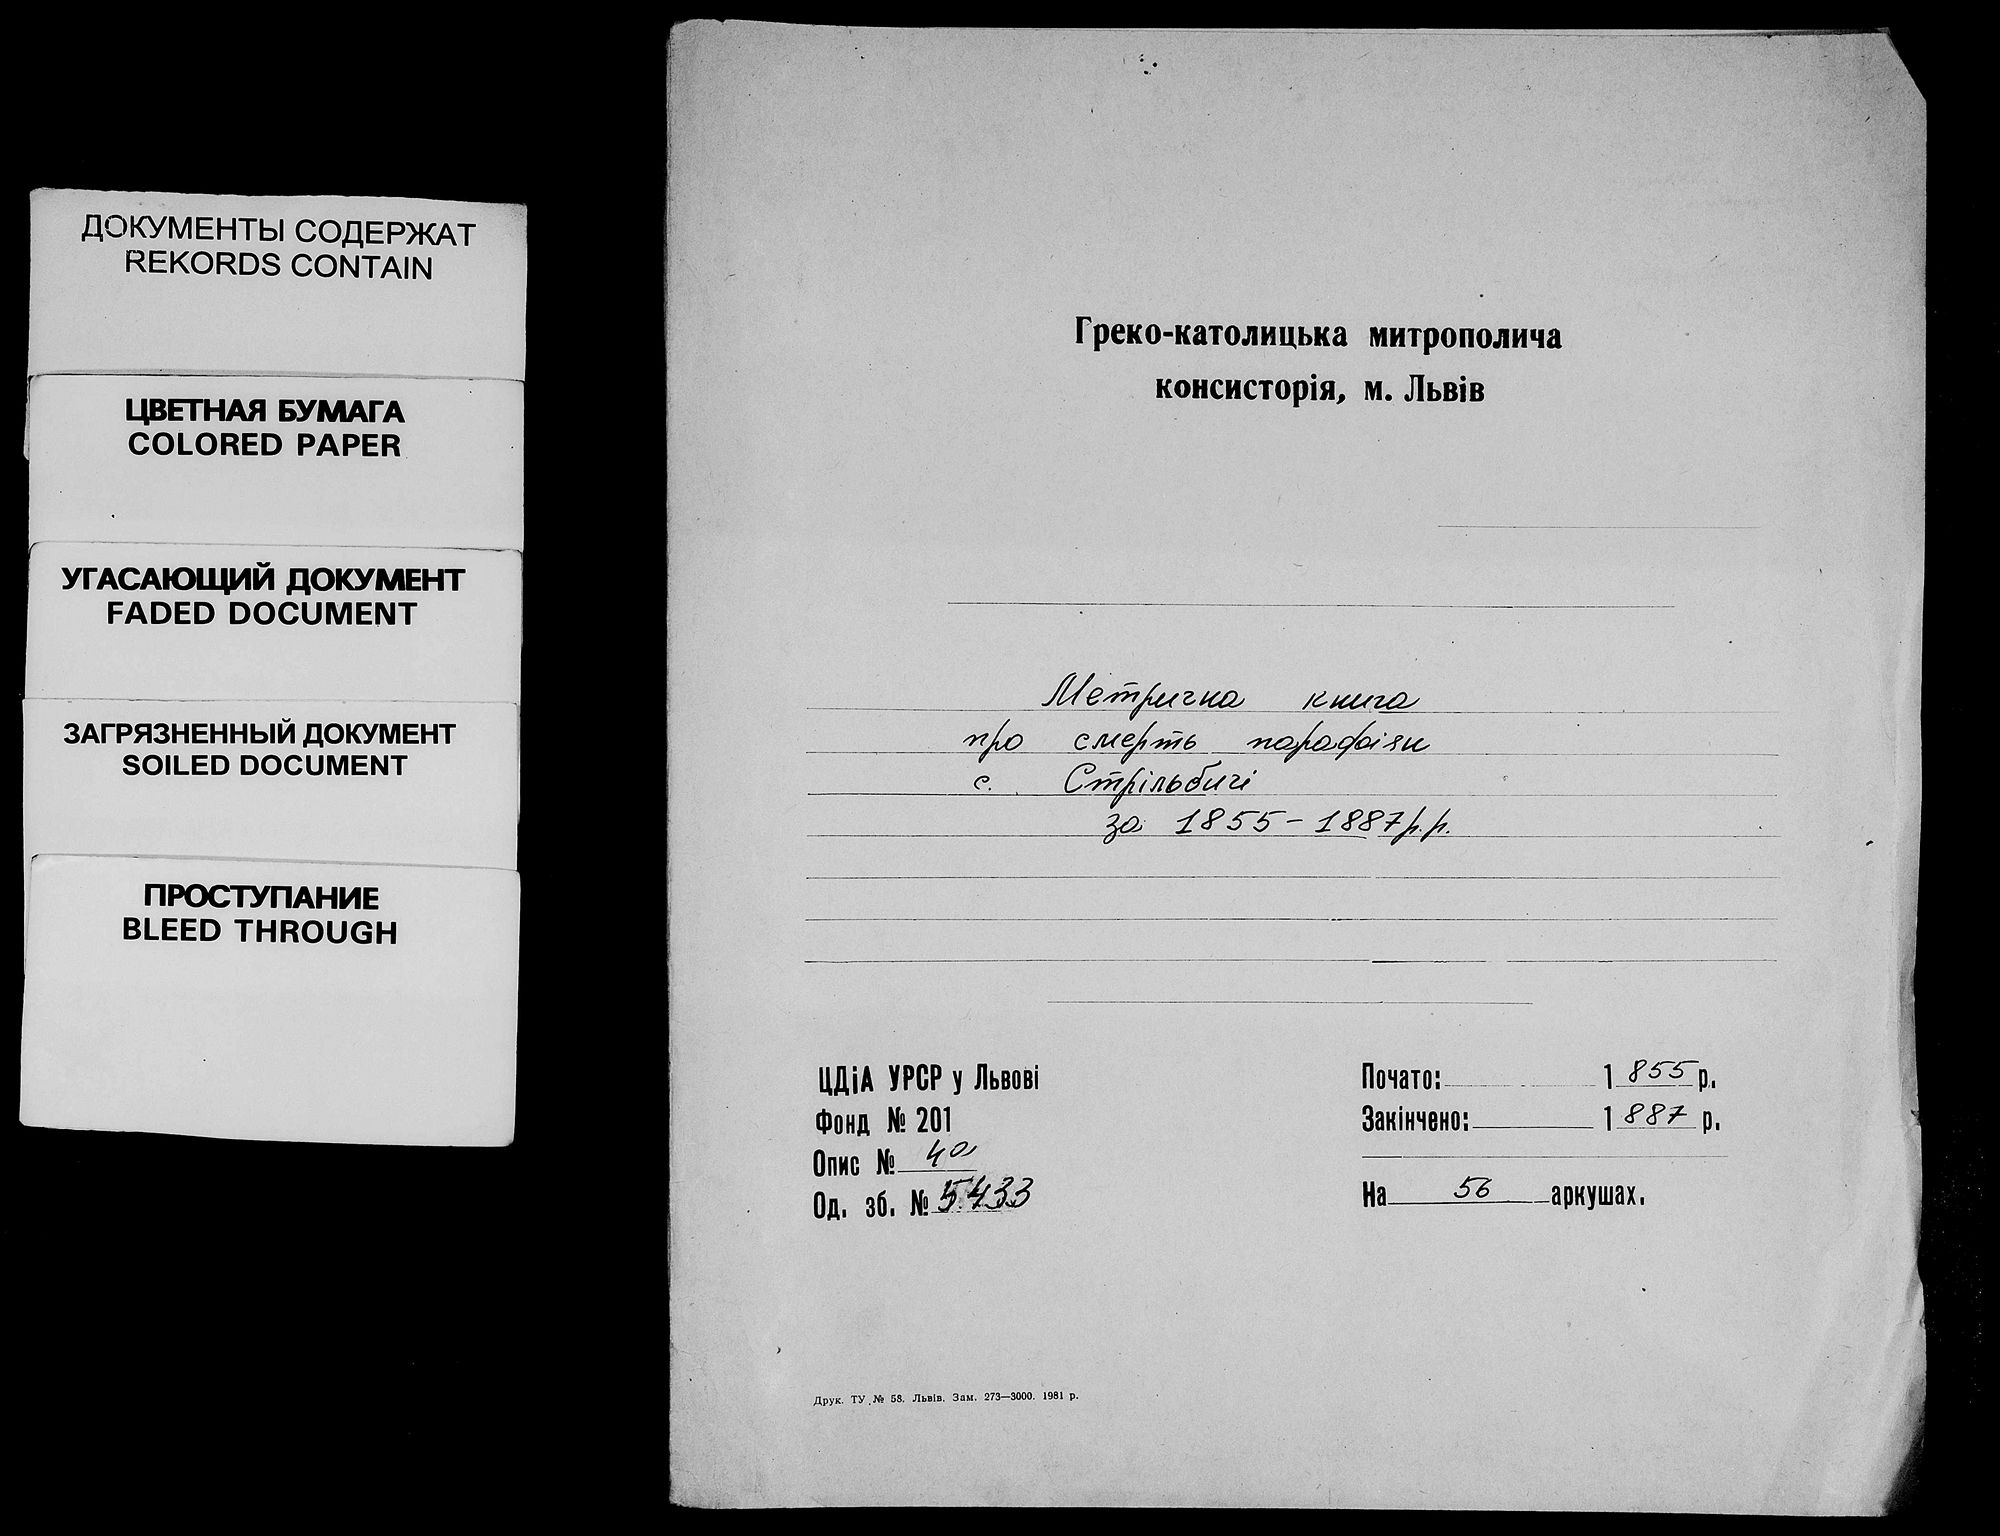 ДОКУМЕНТЫ СОДЕРЖАТ
REKORDS CONTAIN
ЦВЕТНАЯ БУМАГА
COLORED PAPER
УГАСАЮЩИЙ ДОКУМЕНТ
FADED DOCUMENT
ЗАГРЯЗНЕННЫЙ ДОКУМЕНТ
SOILED DOCUMENT
ПРОСТУПАНИЕ
BLEED THROUGH
Греко-католицька митрополича
консисторія, м. Львів
Метрична книга
про смерть парафіян
с. Стрільбичі
за 1855-1887 р.р.
ЦДіА УРСР у Львові
Фонд № 201
Опис № 4а
Од. зб. № 5433
Почато: 1855 р.
Закінчено: 1887 р.
На 56 аркушах.
Друк. ТУ № 58. Львів. Зам. 273—3000. 1981 р.